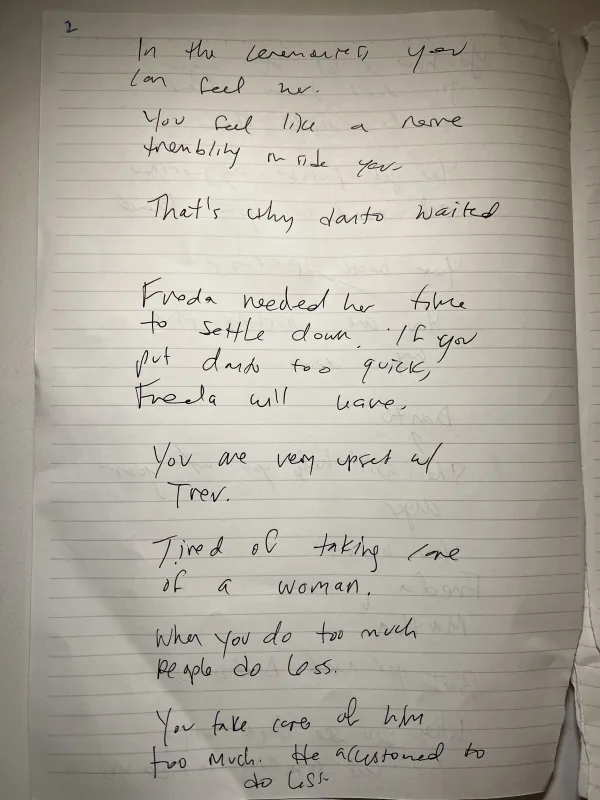 2
In the ceremonies, you
can feel her.
You feel like a nerve
trembling inside you.
That's why danto waited
Freda needed her time
to settle down. If you
put danto too quick,
Freda will leave.
You are very upset w/
Trev.
Tired of taking care
of a woman.
When you do too much
people do less.
You take care of him
too much. He accustomed to
do less